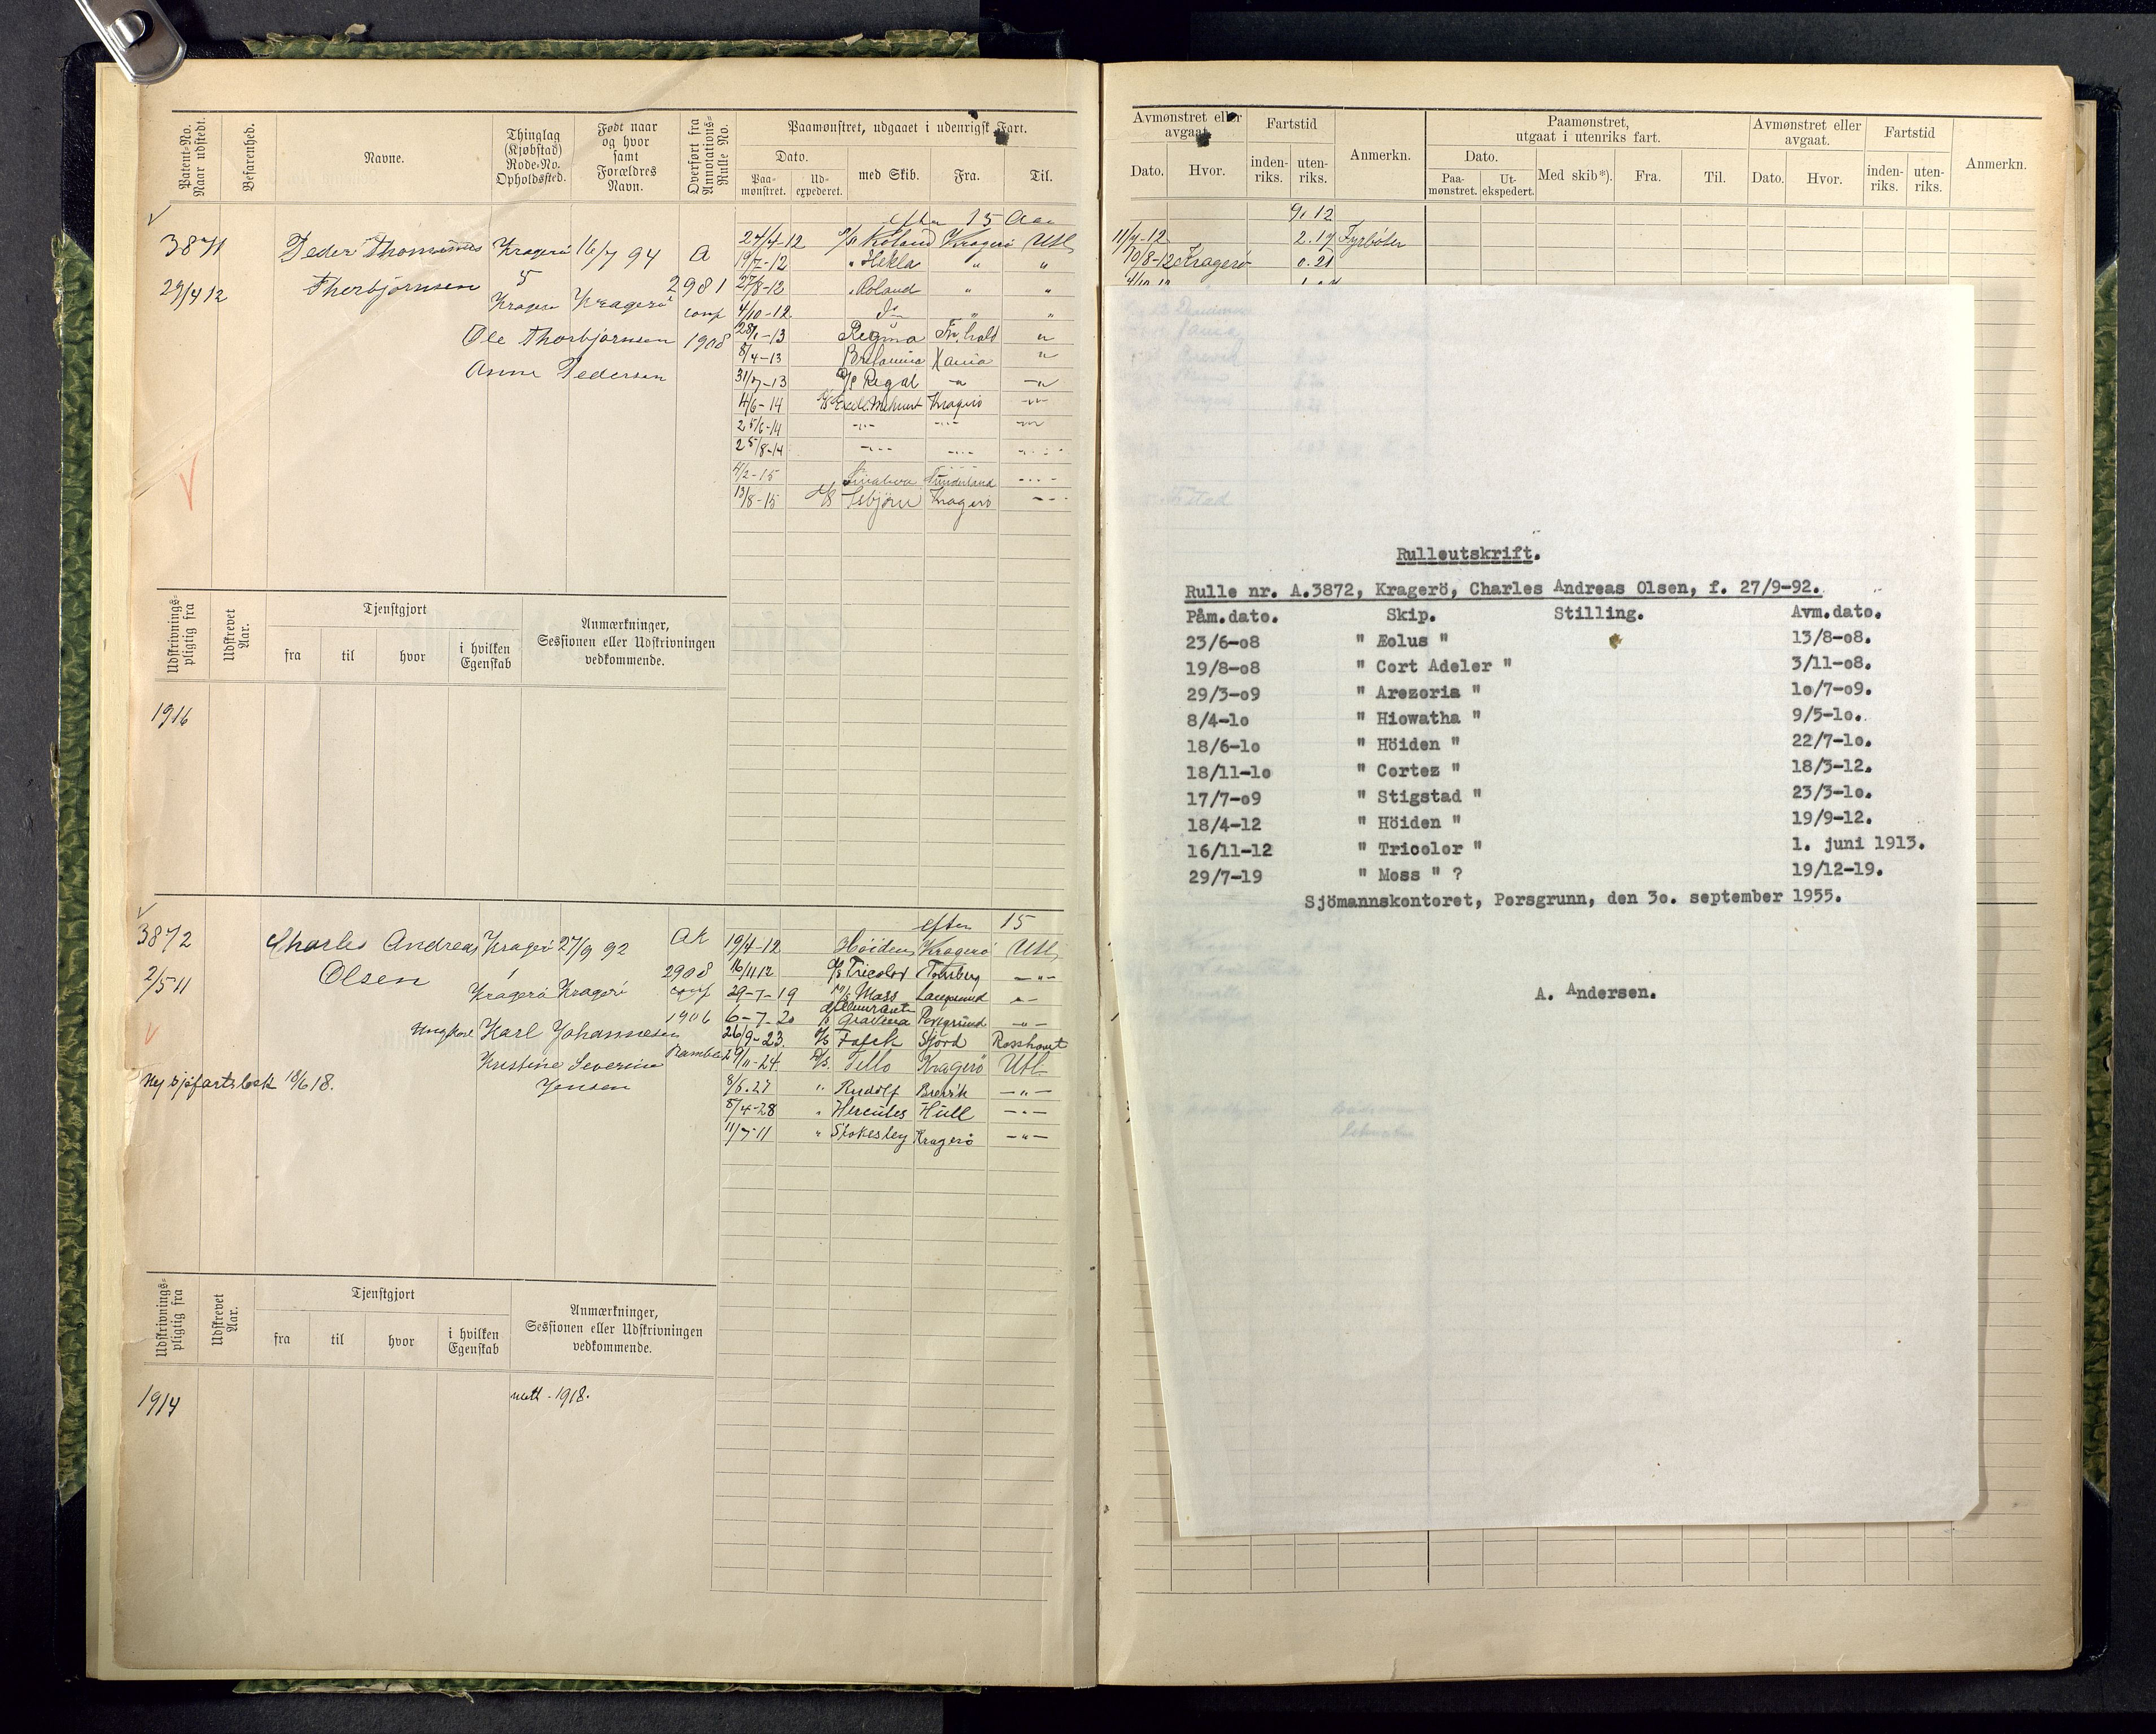 Patent-No. Naar udstedt.
Befarenhed.
Navne.
Thinglag (Kjøbstad) Rode-No. Opholdssted.
Født naar og hvor samt Forældres Navn.
Overført fra Annotations-Rulle No.
Paamønstret, udgaaet i udenrigsk Fart.
Dato.
Paa-mønstret.
Ud-expederet.
med Skib.
Fra.
Til.
15
3871 Peder Thominus Kragerø 16/7 94 A 24/4-12 Roland Kragerø Utl.
19/7-12 " Hekla " "
29/4 12 Thorbjørnsen 5 2981 27/8-12 " Roland " "
Kragerø Kragerø conf 4/10-12 Do " "
Ole Thorbjørnsen 1908 28/1-13 Regina Fr.hald "
8/4-13 Xania "
Anne Pedersen 31/7-13 D/S Regal
4/6-14 Kragerø
25/6-14
25/8-14
4/2-15 Sunderland
13/8-15 D/S Isbjørn Kragerø
Udskrivnings-pligtig fra
Udskrevet Aar.
Tjenstgjort
fra til hvor i hvilken Egenskab
Anmærkninger, Sessionen eller Udskrivningen vedkommende.
1916
efter 15
3872 Charles Andreas Kragerø 27/9 92 AK 19/4-12 Høiden Kragerø Utl.
2/5 11 Olsen 1 2908 16/11 12 D/S Tricolor Tønsberg - " -
Kragerø Kragerø conf 29-7-19 Moss
1906 6-7-20 Porsgrund - " -
Ungkarl Karl Johannesen 26/9-23. Fjord Rosshavet
Kristine Severine Bamble 29/11-24 D/S. Tello Kragerø Utl
Ny sjøfartsbok 18/6 18. Jensen 8/6.27 " Rudolf Brevik - " -
8/4-28 " Hercules Hull - " -
11/7-11 " Stokesley Kragerø - " -
Udskrivnings-pligtig fra
Udskrevet Aar.
Tjenstgjort
fra til hvor i hvilken Egenskab
Anmærkninger, Sessionen eller Udskrivningen vedkommende.
1914 -1918.
Avmønstret eller avgaat.
Dato. Hvor.
Fartstid
inden-riks. uten-riks.
Anmerkn.
Paamønstret, utgaat i utenriks fart.
Dato.
Paa-mønstret. Ut-ekspedert.
Med skib*). Fra. Til.
Avmønstret eller avgaat.
Dato. Hvor.
Fartstid
inden-riks. uten-riks.
Anmerkn.
9. 12
11/7-12 2. 17 Fyrbøter
10/8-12 Kragerø 0. 21
Rulleutskrift.
Rulle nr. A.3872, Kragerö, Charles Andreas Olsen, f. 27/9-92.
Påm.dato. Skip. Stilling. Avm.dato.
23/6-o8 " Æolus " 13/8-o8.
19/8-o8 " Cort Adeler " 3/11-o8.
29/3-o9 " Arezoria " 1o/7-o9.
8/4-1o " Hiowatha " 9/5-1o.
18/6-1o " Höiden " 22/7-1o.
18/11-1o " Cortez " 18/3-12.
17/7-o9 " Stigstad " 23/3-1o.
18/4-12 " Höiden " 19/9-12.
16/11-12 " Tricolor " 1. juni 1913.
29/7-19 " Moss " ? 19/12-19.
Sjömannskontoret, Porsgrunn, den 3o. september 1955.
A. Andersen.